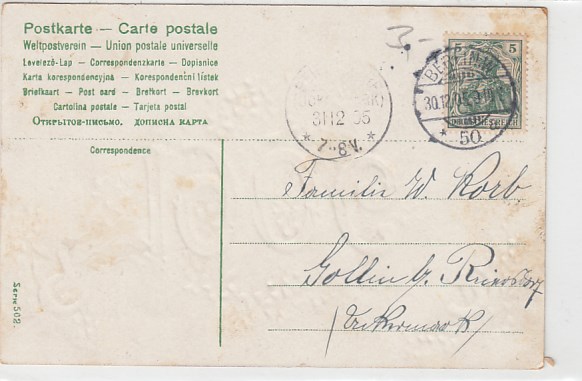 Postkarte — Carte postale
Weltpostverein — Union postale universelle
Levelező-Lap — Correspondenzkarte — Dopisnice
Karta korespondencyjna — Korespondenční lístek
Briefkaart — Post card — Brefkort — Brevkort
Cartolina postale — Tarjeta postal
Открытое-письмо. дописна карта
Correspondence
3.
31 12 05
7-8 V.
BERLIN
30.12.0
* 50
5 5
Familie W. Korb.
Gollin
(Uckermark)
Serie 502.